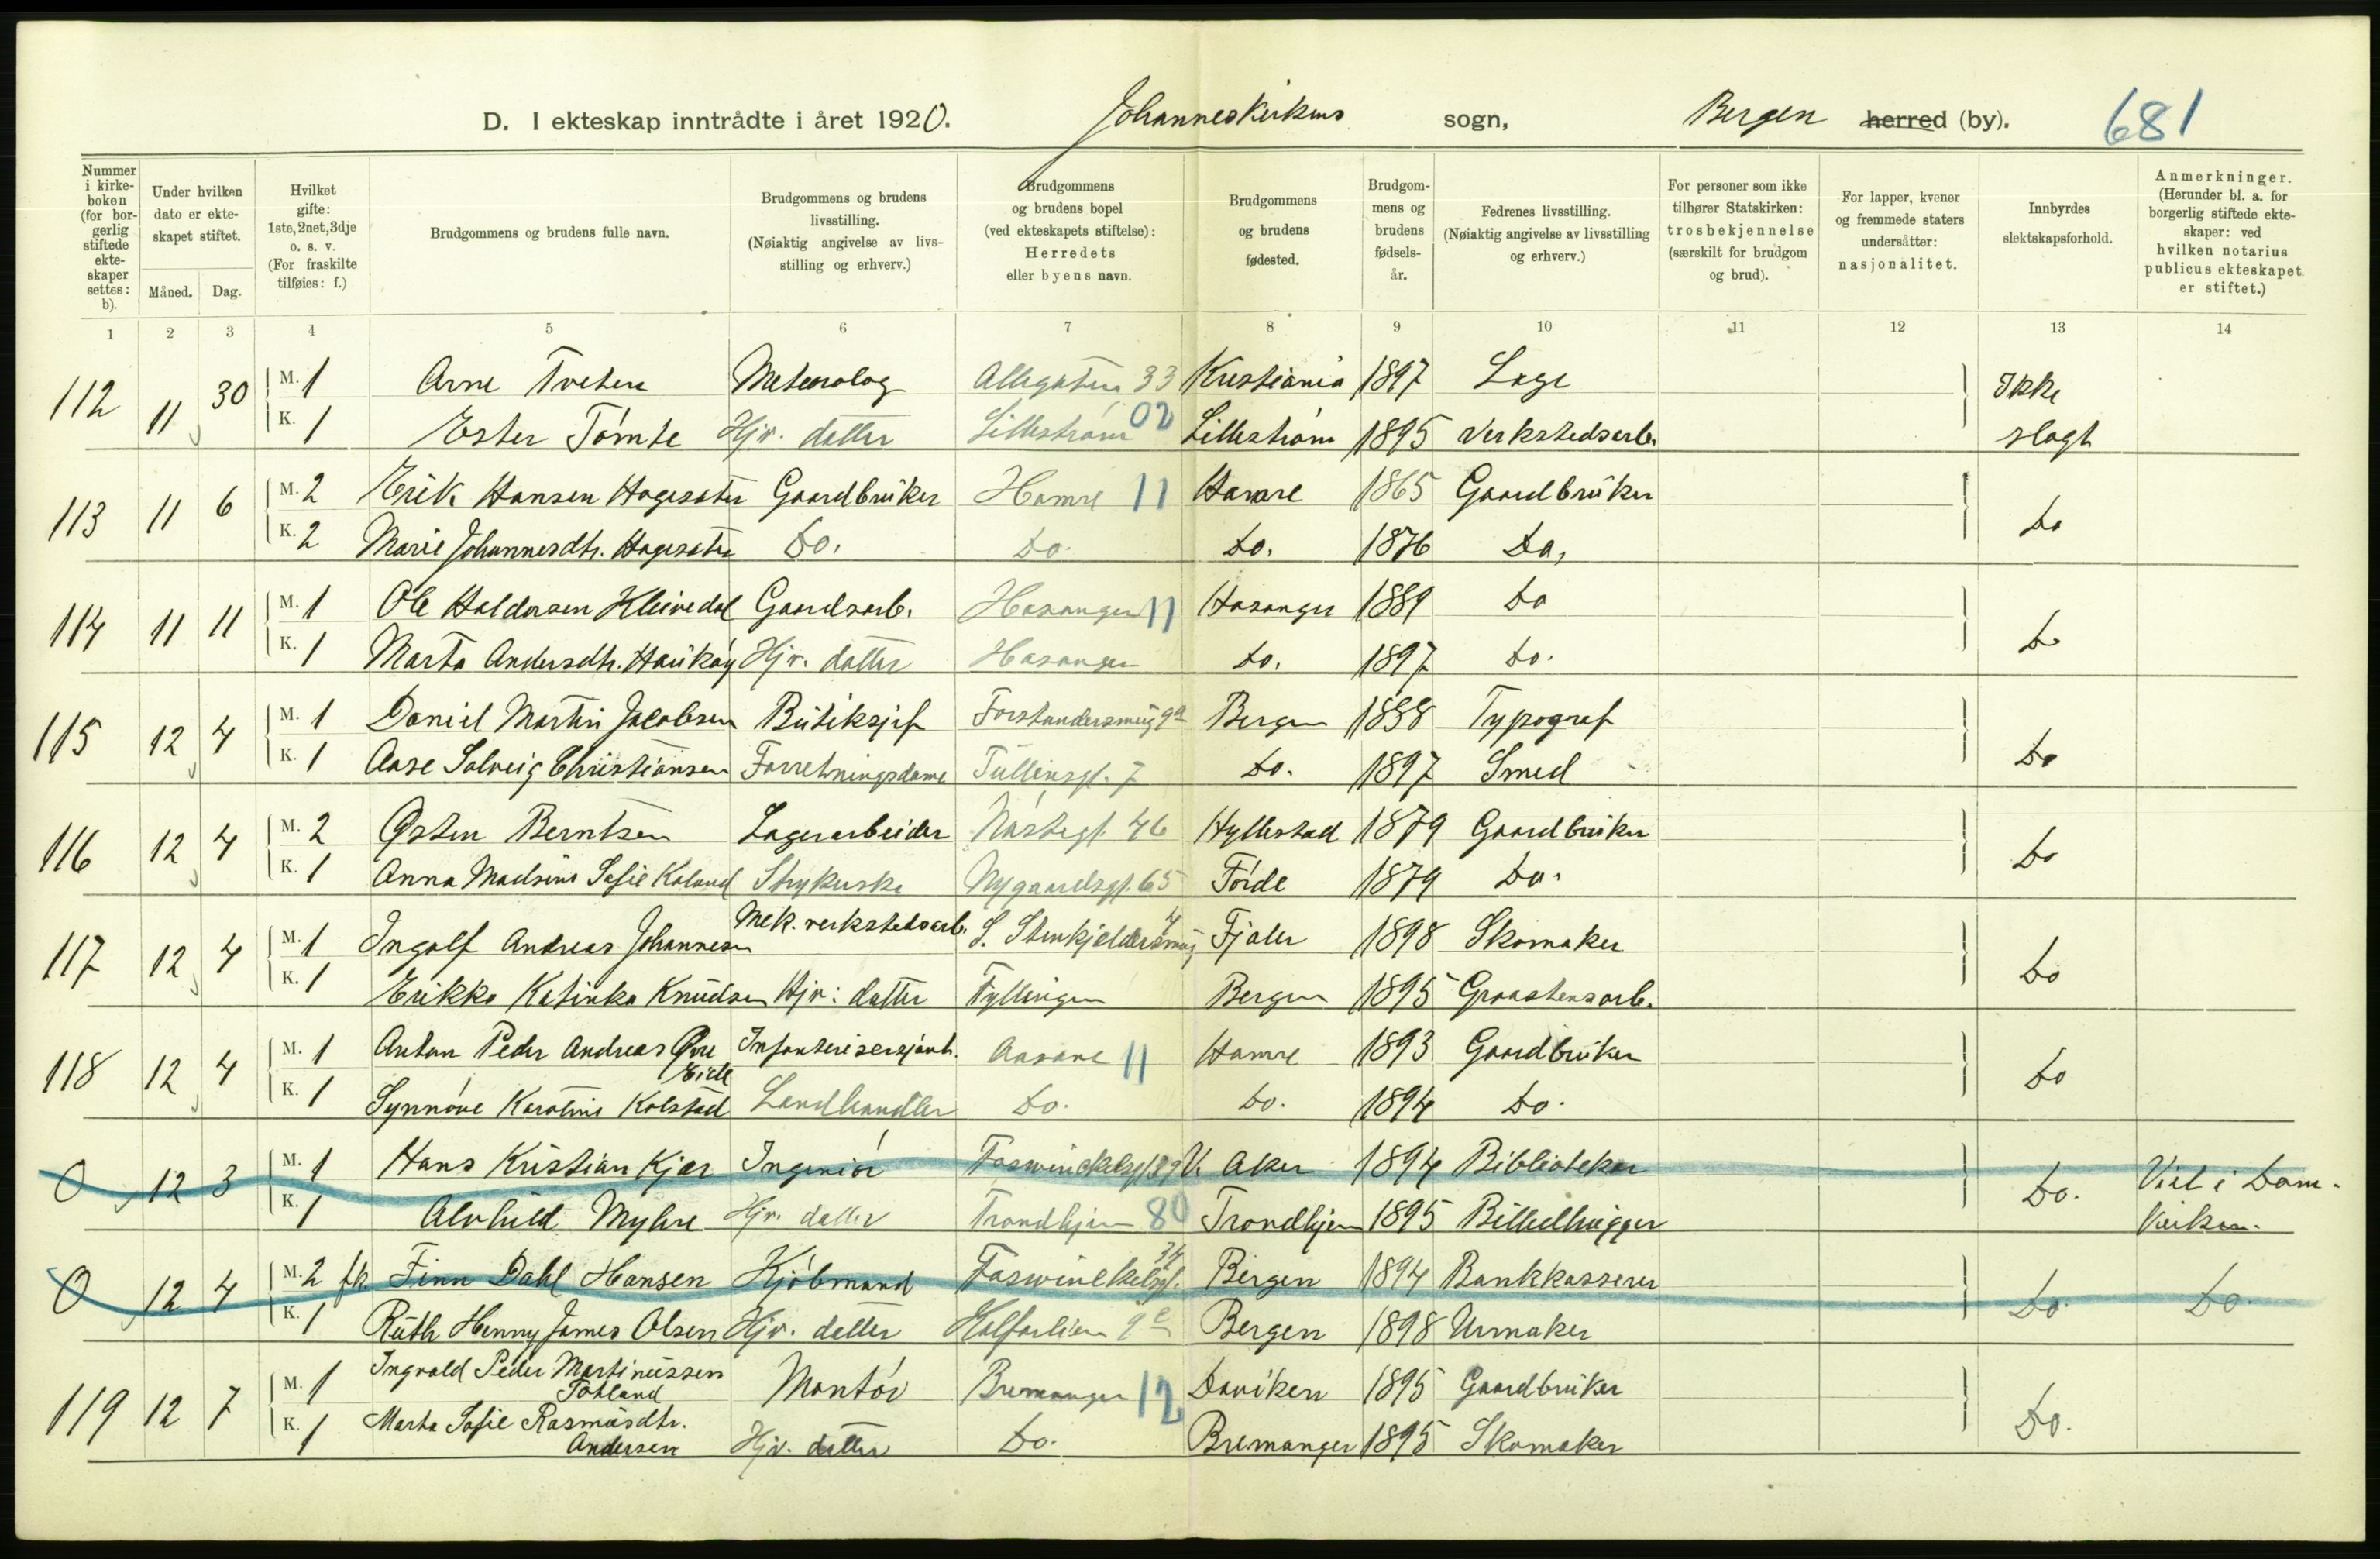 D. I ekteskap inntrådte i året 1920. Johanneskirkens sogn, Bergen herred (by). 681
Nummer i kirkeboken (for borgerlig stiftede ekteskaper settes: b).
Under hvilken dato er ekteskapet stiftet.
Måned. Dag.
Hvilket gifte: 1ste, 2net, 3dje o. s. v. (For fraskilte tilføies: f.)
Brudgommens og brudens fulle navn.
Brudgommens og brudens livsstilling. (Nøiaktig angivelse av livsstilling og erhverv.)
Brudgommens og brudens bopel (ved ekteskapets stiftelse): Herredets eller byens navn.
Brudgommens og brudens fødested.
Brudgommens og brudens fødselsår.
Fedrenes livsstilling. (Nøiaktig angivelse av livsstilling og erhverv.)
For personer som ikke tilhører Statskirken: trosbekjennelse (særskilt for brudgom og brud).
For lapper, kvener og fremmede staters undersåtter: nasjonalitet.
Innbyrdes slektskapsforhold.
Anmerkninger. (Herunder bl. a. for borgerlig stiftede ekteskaper: ved hvilken notarius publicus ekteskapet er stiftet.)
1 2 3 4 5 6 7 8 9 10 11 12 13 14
112 11 30 M. 1 Arne Tveten Meteorolog Allegaten 33 Kristiania 1897 Læge Ikke
K. 1 Ester Tómte Hjv. datter Lillestrøm 02 Lillestrøm 1895 Verkstedsarb. slægt
113 11 6 M. 2 Erik Hansen Hagesæter Gaardbruker Hamre 11 Hamre 1865 Gaardbruker Do
K. 2 Marie Johannesdtr. Hagesæter Do. Do. Do. 1876 Do,
114 11 11 M. 1 Ole Haldorsen Kleivedal Gaardsarb. Hosanger 11 Hosanger 1889 Do Do
K. 1 Marta Andersdtr. Haukøy Hjv. datter Hosanger Do. 1897 Do.
115 12 4 M. 1 Daniel Martin Jacobsen Butiksjef Forstandersmug 9a Bergen 1898 Typograf Do
K. 1 Aase Solveig Christiansen Forretningsdame Tullinsgt. 7 Do. 1897 Smed
116 12 4 M. 2 Østen Berntsen Lagerarbeider Nøstegt. 46 Hyllestad 1879 Gaardbruker Do
K. 1 Anna Madsine Sofie Kaland Strykerske Nygaardsgt. 65 Førde 1879 Do.
117 12 4 M. 1 Ingolf Andreas Johannesen Mek. verkstedsarb. S. Stenkjeldersmug 4 Fjaler 1898 Skomaker Do
K. 1 Erikka Katinka Knudsen Hjv: datter Fyllingen Bergen 1895 Graastensarb.
118 12 4 M. 1 Anton Peder Andreas Øvre Eide Infanterisersjant. Aasane 11 Hamre 1893 Gaardbruker Do
K. 1 Synnøve Karoline Kolstad Landhandler Do. Do. 1894 Do.
0 12 3 M. 1 Hans Kristian Kjær Ingeniør Foswinckelsgt 39 V. Aker 1894 Bibliotekar Do. Viet i Dom-
K. 1 Alvhild Myhre Hjv. datter Trondhjem 80 Trondhjem 1895 Billedhugger kirken.
0 12 4 M. 2 fk Finn Dahl Hansen Kjøbmand Foswinckelsgt. 34 Bergen 1894 Bankkasserer Do. Do.
K. 1 Ruth Henny James Olsen Hjv. datter Kalfarlien 9c Bergen 1898 Urmaker
119 12 7 M. 1 Ingvald Peder Martinussen Totland Montør Bremanger 12 Daviken 1895 Gaardbruker Do.
K. 1 Marta Sofie Rasmusdtr. Andersen Hjv. datter Do. Bremanger 1895 Skomaker